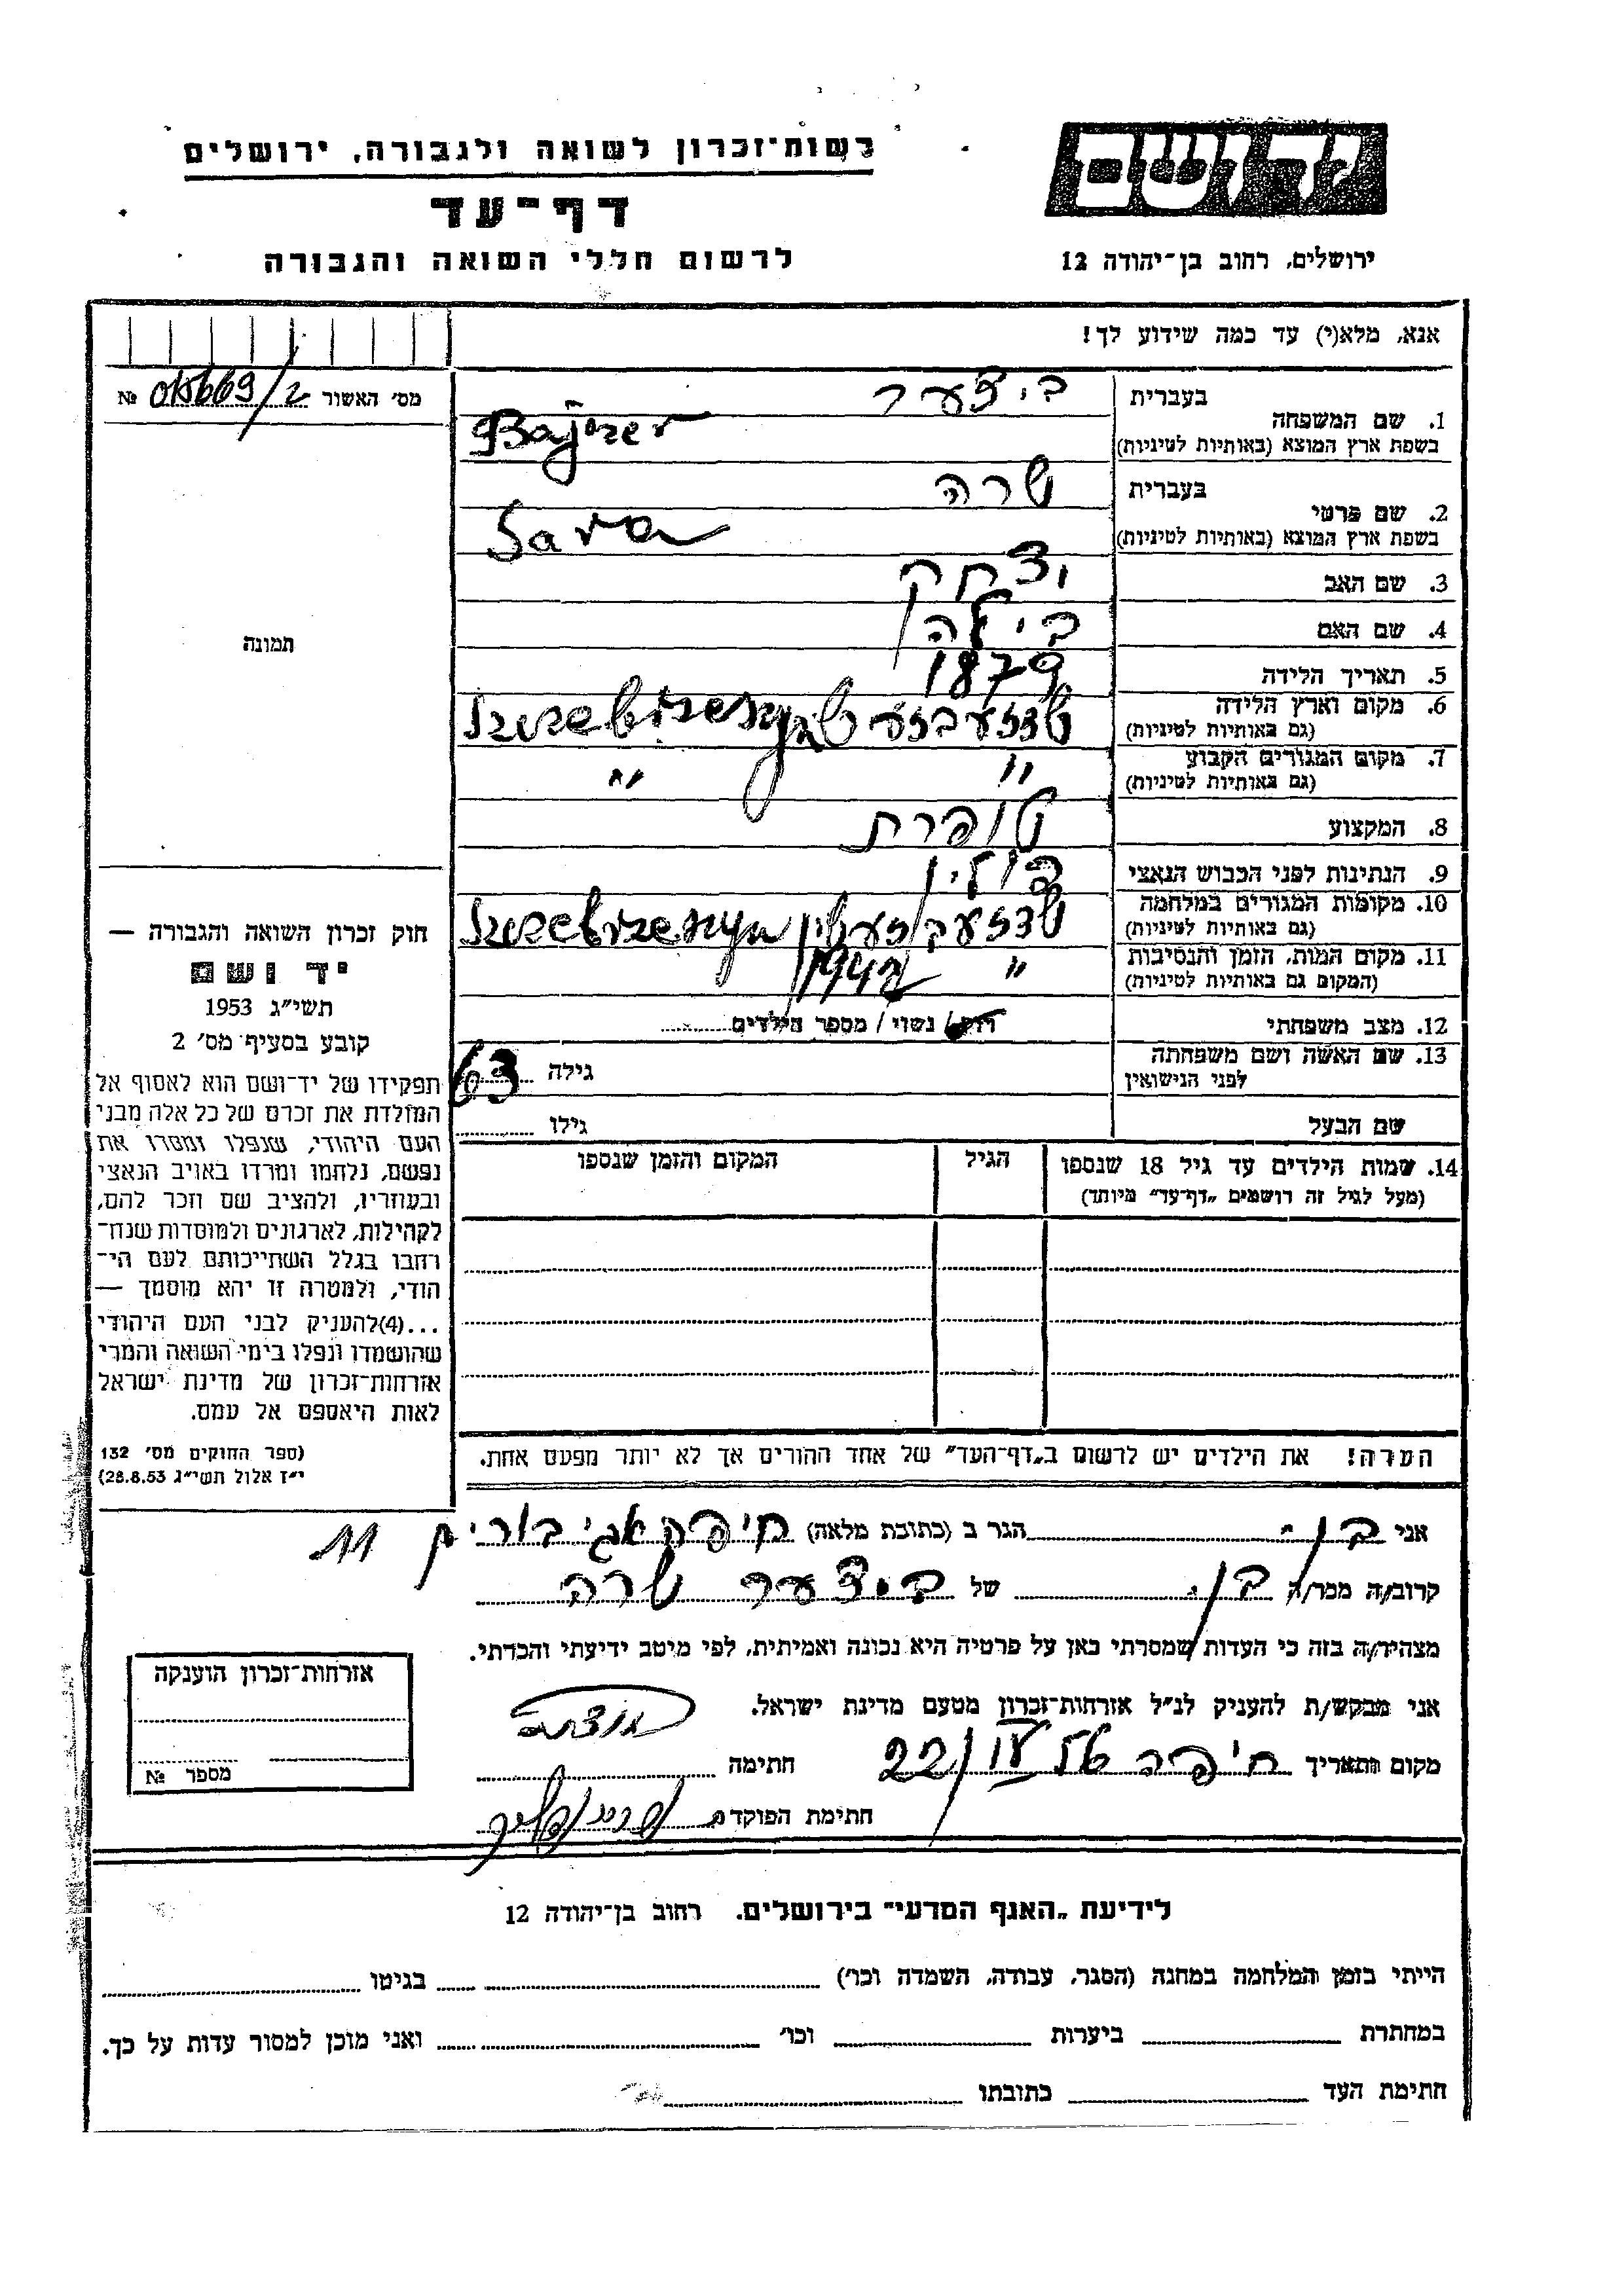 רשות־זכרון לשואה ולגבורה, ירושלים
דף־עד
לרשום חללי השואה והגבורה
יד ושם
ירושלים, רחוב בן־יהודה 12
אנא, מלא(י) עד כמה שידוע לך!
מס׳ האשור № /2
1. שם המשפחה
בעברית ביצער
בשפת ארץ המוצא (באותיות לטיניות) Bajcer
2. שם פרטי
בעברית שרה
בשפת ארץ המוצא (באותיות לטיניות) Sara
3. שם האב יצחק
4. שם האם בילה
5. תאריך הלידה 1879
6. מקום וארץ הלידה
(גם באותיות לטיניות)
7. מקום המגורים הקבוע " "
(גם באותיות לטיניות)
8. המקצוע טופרת
9. הנתינות לפני הכבוש הנאצי פולין
10. מקומות המגורים במלחמה
(גם באותיות לטיניות)
11. מקום המות, הזמן והנסיבות " 1942
(המקום גם באותיות לטיניות)
12. מצב משפחתי רווק / נשוי / מספר הילדים
13. שם האשה ושם משפחתה
לפני הנישואין
גילה 63
שם הבעל גילו
14. שמות הילדים עד גיל 18 שנספו
(מעל לגיל זה רושמים „דף־עד״ מיוחד)
הגיל
המקום והזמן שנספו
הערה! את הילדים יש לרשום ב„דף־העד״ של אחד ההורים אך לא יותר מפעם אחת.
תמונה
חוק זכרון השואה והגבורה —
יד ושם
תשי״ג 1953
קובע בסעיף מס׳ 2
תפקידו של יד־ושם הוא לאסוף אל
המולדת את זכרם של כל אלה מבני
העם היהודי, שנפלו ומסרו את
נפשם, נלחמו ומרדו באויב הנאצי
ובעוזריו, ולהציב שם וזכר להם,
לקהילות, לארגונים ולמוסדות שנח־
רחבו בגלל השתייכותם לעם הי־
הודי, ולמטרה זו יהא מוסמך —
...(4)להעניק לבני העם היהודי
שהושמדו ונפלו בימי השואה והמרי
אזרחות־זכרון של מדינת ישראל
לאות היאספם אל עמם.
(ספר החוקים מס׳ 132
י״ז אלול תשי״ג 28.8.53)
אני בן הגר ב (כתובת מלאה) חיפה 11
קרוב/ה מכר/ה בן של ביצער שרה
מצהיר/ה בזה כי העדות שמסרתי כאן על פרטיה היא נכונה ואמיתית, לפי מיטב ידיעתי והכרתי.
אני מבקש/ת להעניק לנ״ל אזרחות־זכרון מטעם מדינת ישראל.
מקום ותאריך חיפה 22/ חתימה
חתימת הפוקד
אזרחות־זכרון הוענקה
מספר №
לידיעת „האגף המדעי״ בירושלים, רחוב בן־יהודה 12
הייתי בזמן המלחמה במחנה (הסגר, עבודה, השמדה וכו׳) בגיטו
במחתרת ביערות וכו׳ ואני מוכן למסור עדות על כך.
חתימת העד כתובתו